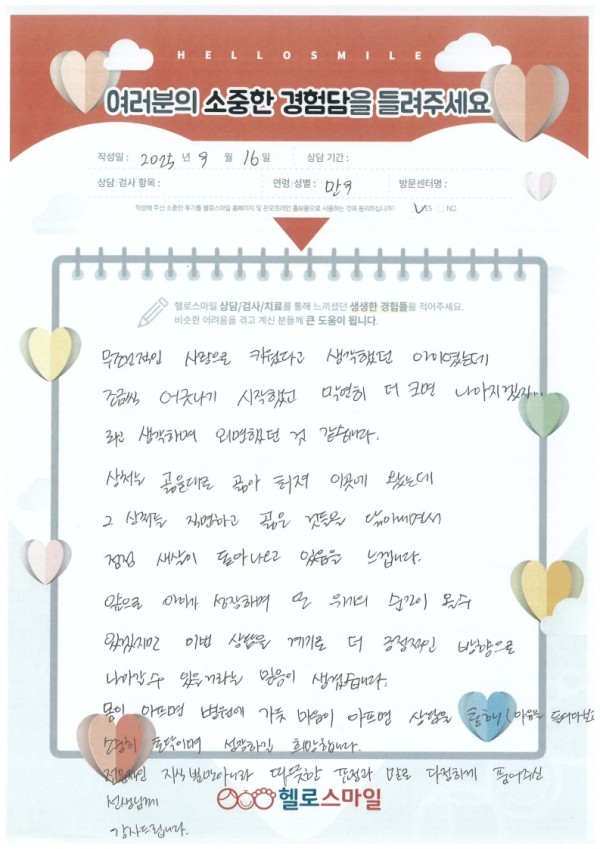 HELLOSMILE
여러분의 소중한 경험담을 들려주세요
작성일 : 2025 년 9 월 16 일 상담 기간 :
상담 검사 항목 : 연령 성별 : 만9 방문센터명 :
작성해 주신 소중한 후기를 헬로스마일 홈페이지 및 온오프라인 홍보용으로 사용하는 것에 동의하십니까? YES NO
헬로스마일 상담/검사/치료를 통해 느끼셨던 생생한 경험들을 적어주세요.
비슷한 어려움을 겪고 계신 분들께 큰 도움이 됩니다.
무조건적인 사랑으로 키웠다고 생각했던 아이였는데
조금씩 어긋나기 시작했고 막연히 더 크면 나아지겠지...
라고 생각하며 외면했던 것 같습니다.
상처는 곪을대로 곪아 터져 이곳에 왔는데
그 상처를 직면하고 곪은 것들을 닦아내면서
점점 새살이 돋아나오고 있음을 느낍니다.
앞으로 아이가 성장하며 또 위기의 순간이 올수
있겠지만 이번 상담을 계기로 더 긍정적인 방향으로
나아갈수 있을거라는 믿음이 생겼습니다.
몸이 아프면 병원에 가듯 마음이 아프면 상담을 통해 마음을 들여다보고
소중히 토닥이며 성장하길 희망합니다.
전문적인 지식 뿐만아니라 따뜻한 표정과 말로 다정하게 품어주신
선생님께
헬로스마일
감사드립니다.